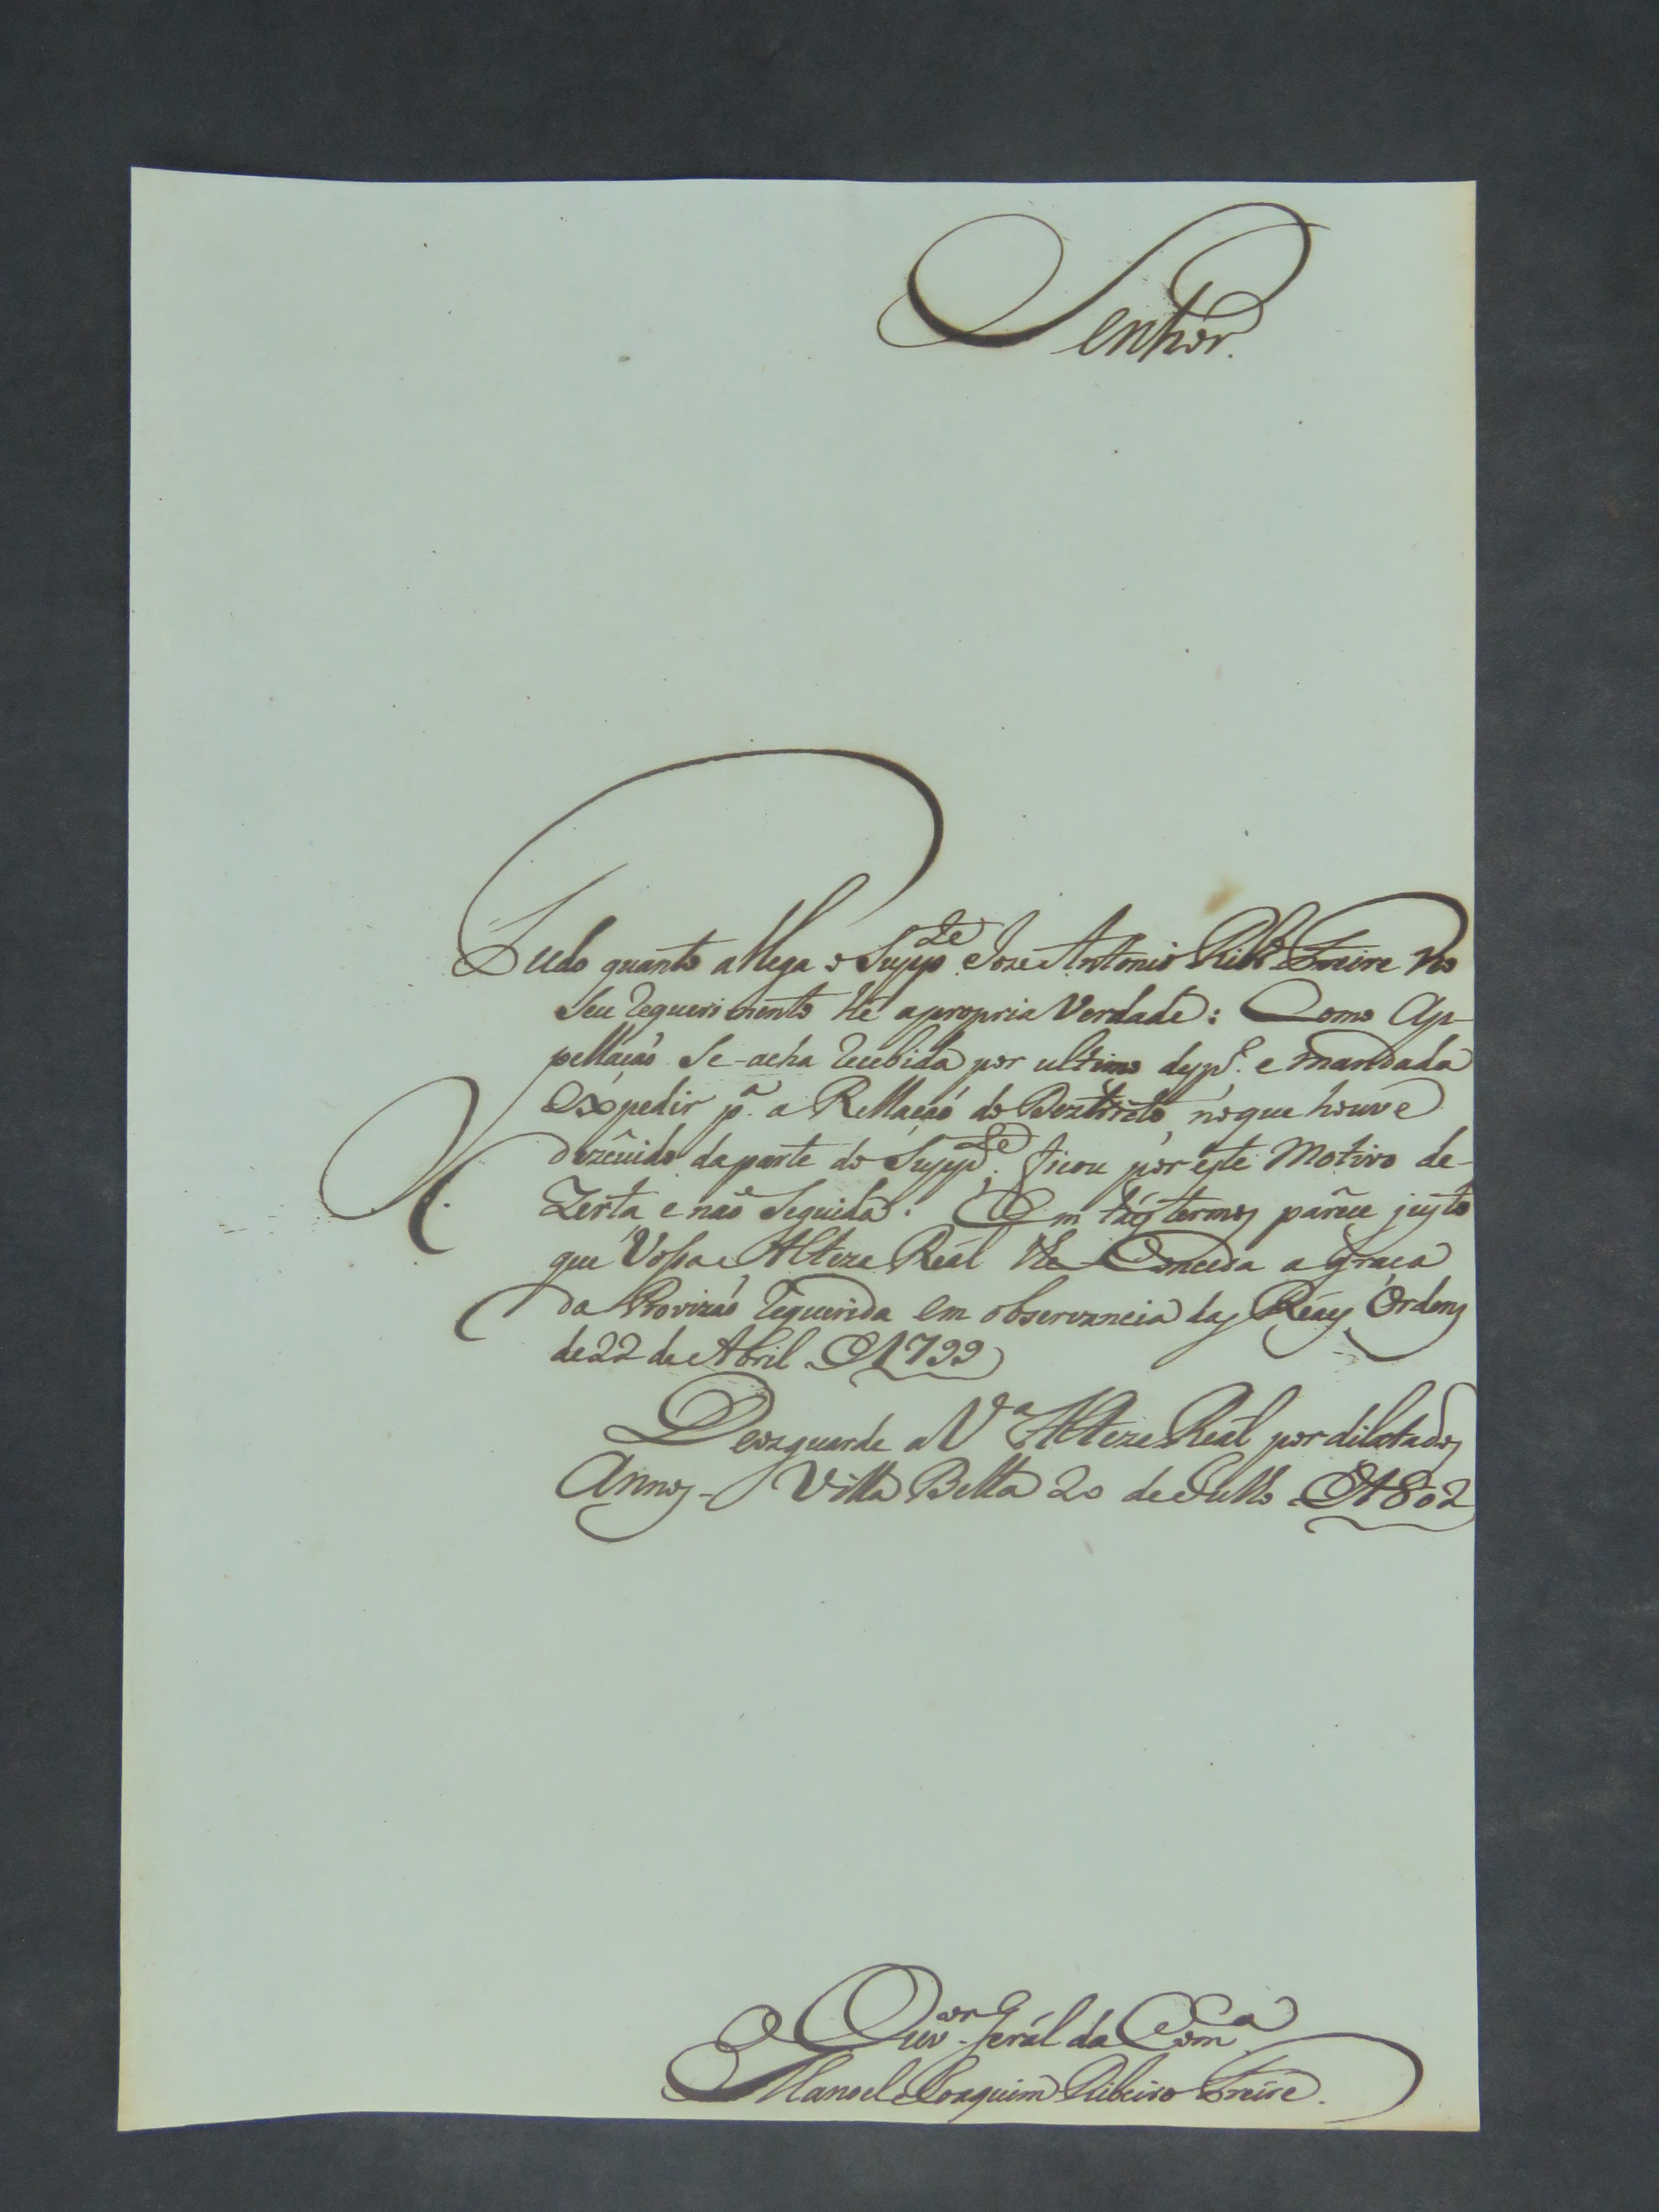 Senhor.
Tudo quanto allega o Supp.te Joze Antonio Ribr.o Freire no
Seu requerimento hé apropria Verdade: Como Ap-
pellação Se-acha recebida por ultimo desp.o e mandada
expedir p.a a Rellação do Deztricto, noque houve
dezcuido daparte do Supp.te: ficou por este Motivo de-
Zerta e não Seguida. Em táes termos paréce justo
que Vossa Alteza Reál lhe Conceda a graca
da Provizão requerida em observancia das Reáes Ordens
de 22 de Abril de 1799
Deos guarde a V.a Alteza Reál por dilatados
Annos. Villa Bella 20 de Julho de 1802
O Ouv.or Gerál da Com.ca
Manoel Joaquim Ribeiro Freire.